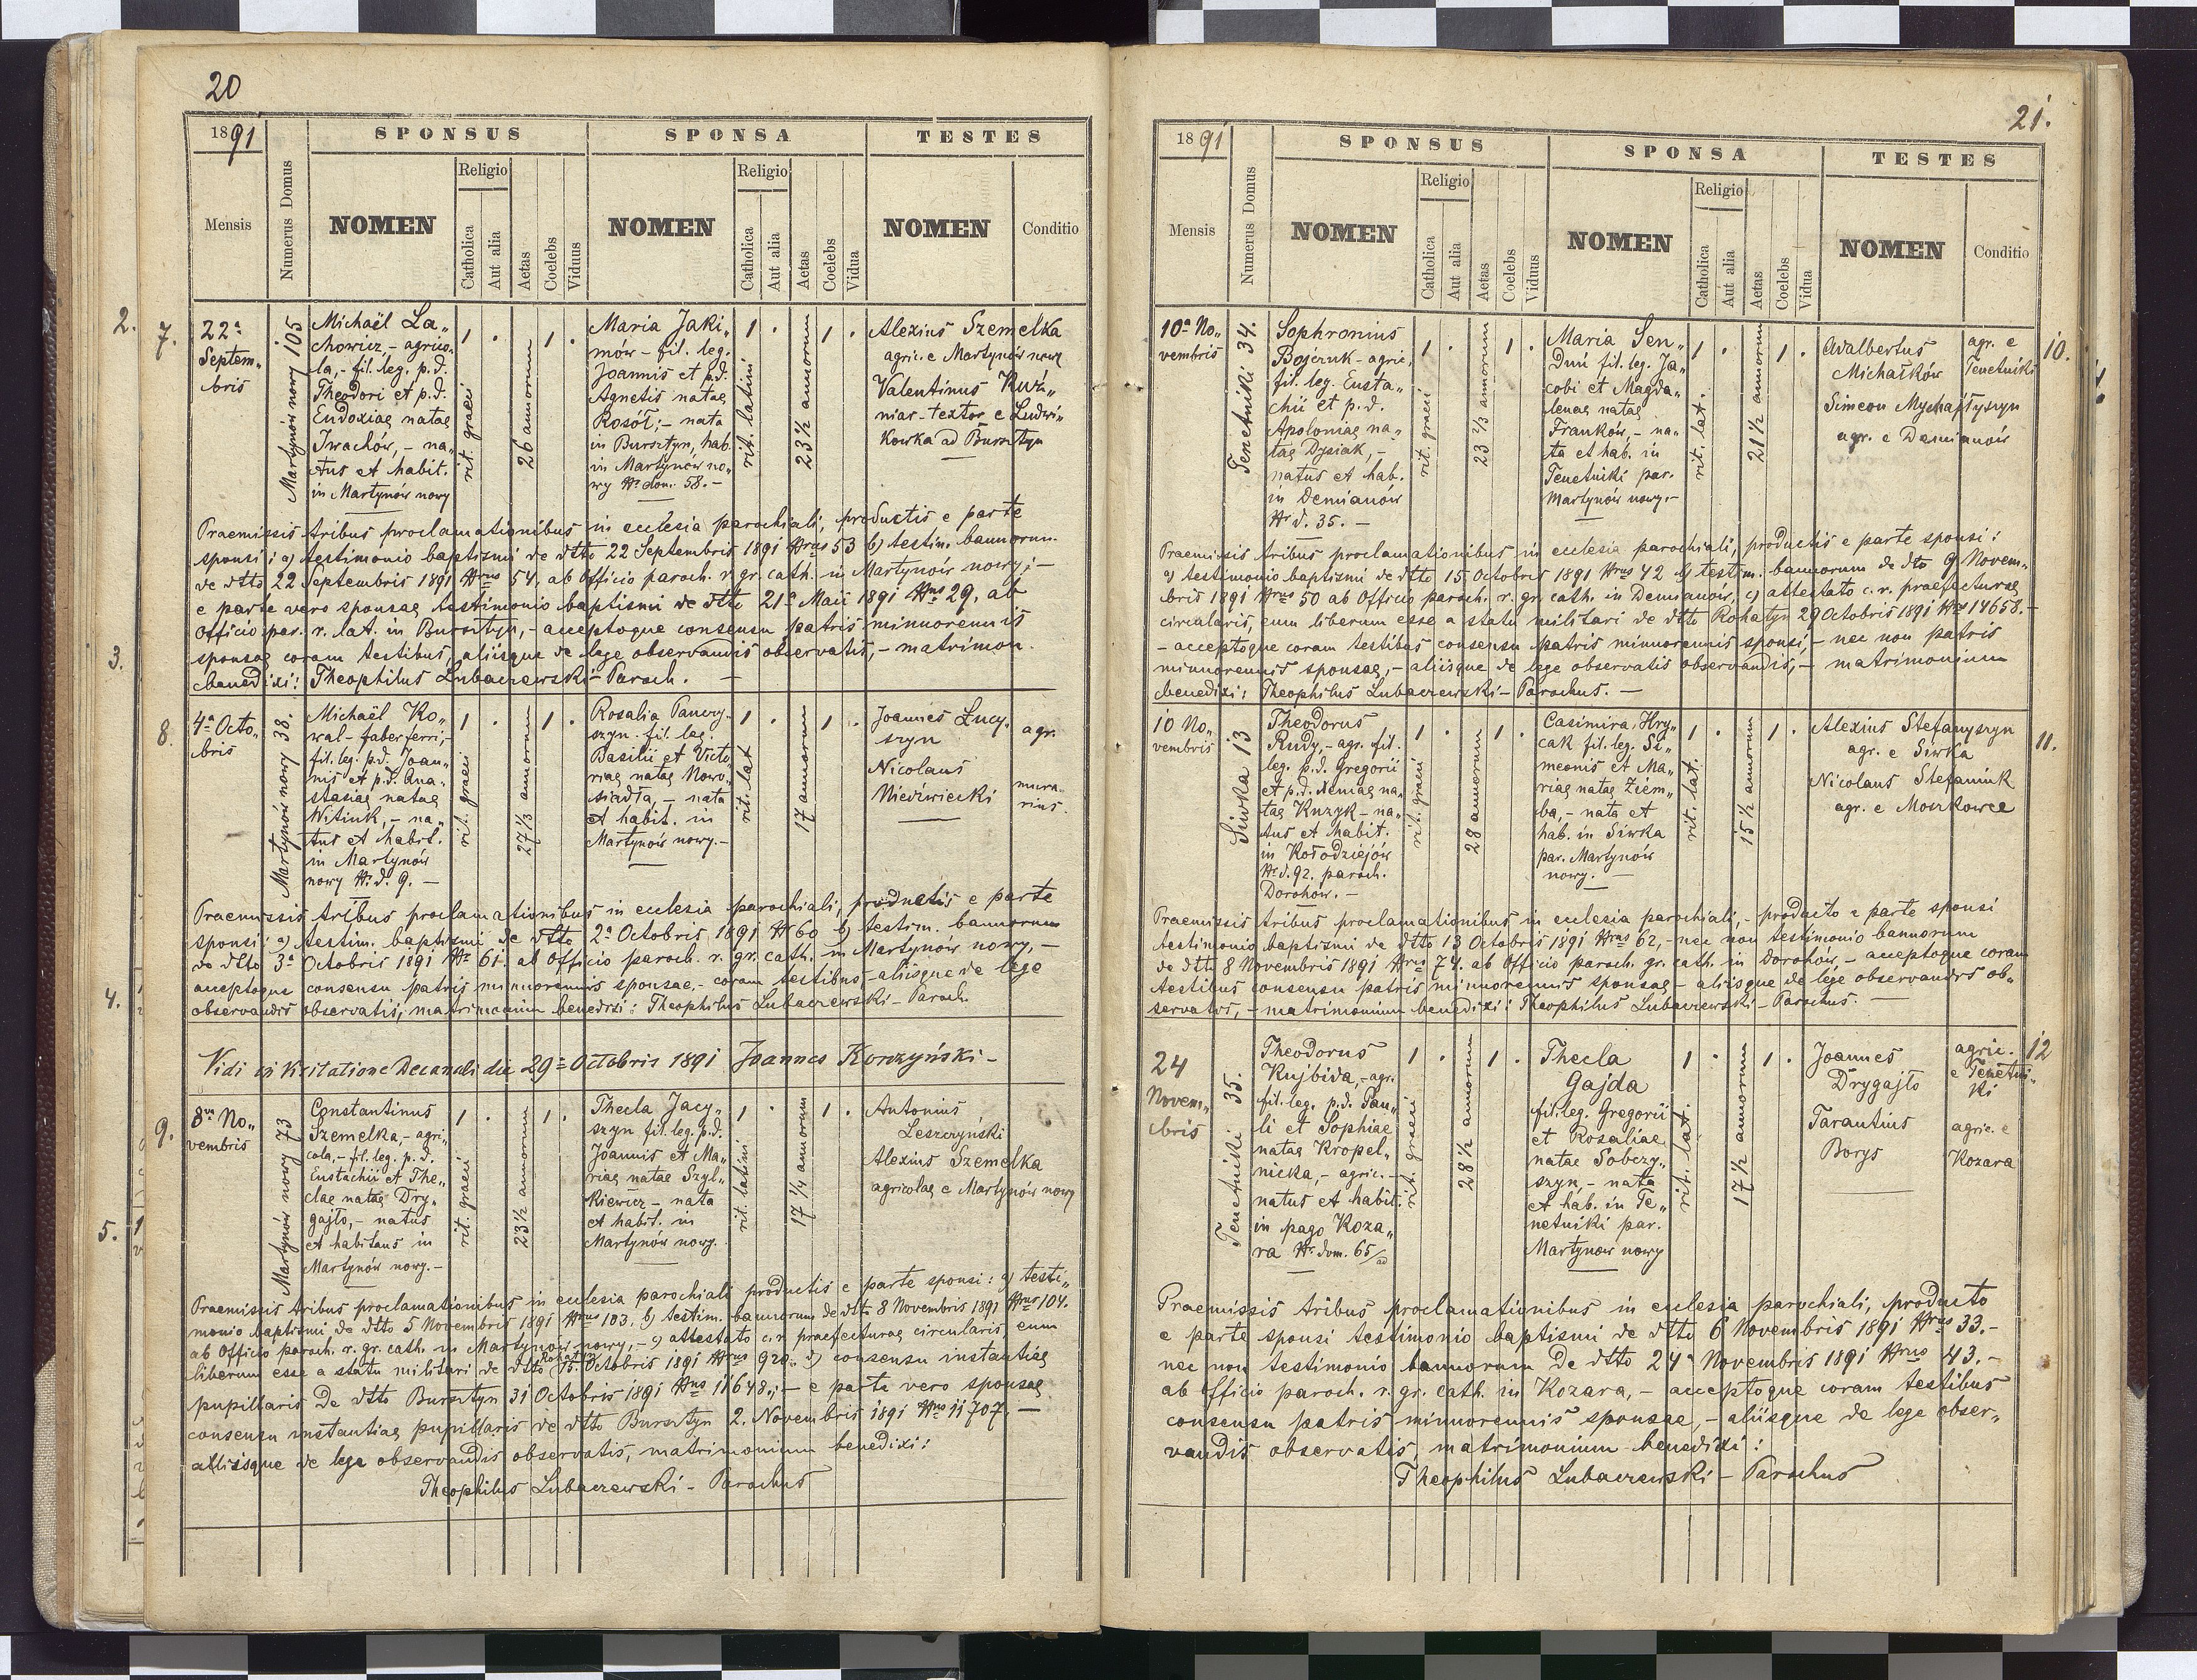 20
1891
SPONSUS
SPONSA
TESTES
Mensis
Numerus Domus
NOMEN
Religio
Catholica
Aut alia
Aetas
Coelebs
Viduus
NOMEN
Religio
Catholica
Aut alia
Aetas
Coelebs
Vidua
NOMEN
Conditio
7.
22a
Septem„
bris
Martynów nowy 105
Michaël La„
chowicz, - agrico„
la, - fil. leg. p.d.
Theodori et p.d.
Eudoxiae natae
Iwachów, - na„
tus et habit.
in Martynów nowy
1
rit. graeci
26 annorum
1
Maria Jaki„
mów - fil. leg.
Joannis et p.d.
Agnetis natae
Rosół; - nata
in Bursztyn, hab.
in Martynów no„
wy Nr dom. 58. -
1
rit. latini
23 1/2 annorum
1
Alexius Szemelka
agric. e Martynów nowy
Valentinus Kuź„
niar - textor e Ludwi„
kowka ad Bursztyn
Praemissis tribus proclamationibus in ecclesia parochiali, productis e parte
sponsi: a) testimonio baptismi de dtto 22 Septembris 1891 Nrus 53 b) testim. bannorum
de dtto 22 Septembris 1891 Nrus 54, ab Officio paroch. r. gr. cath. in Martynów nowy; -
e parte vero sponsae testimonio baptismi de dtto 21a Maii 1891 Nrus 29, ab
Officio par. r. lat. in Bursztyn, - acceptoque consensu patris minnorennis
sponsae coram testibus, aliisque de lege observandis observatis, - matrimon.
benedixi: Theophilus Lubaczewski - Paroch. -
8.
4a Octo„
bris
Martynów nowy 38.
Michaël Ko„
wal - faber ferri, -
fil. leg. p.d. Joan„
nis et p.d. Ana„
stasiae natae
Witiuk, - na„
tus et habit.
in Martynów
nowy Nr. d. 9. -
1
rit. graeci
27 1/3 annorum
1
Rosalia Panczy„
szyn - fil. leg.
Basilii et Victo„
riae natae Nowo„
siadła, - nata
et habit. in
Martynów nowy. -
1
rit. lat
17 annorum
1
Joannes Łucy„
szyn
agr.
Nicolaus
Niedźwiecki
mura„
rius.
Praemissis tribus proclamationibus in ecclesia parochiali, productis e parte
sponsi: a) testim. baptismi de dtto 2a Octobris 1891 Nr 60 b) testim. bannorum
de dtto 3a Octobris 1891 Nr 61. ab Officio paroch. r. gr. cath. in Martynów nowy, -
acceptoque consensu patris minnorennis sponsae, - coram testibus - aliisque de lege
observandis observatis; matrimonium benedixi: Theophilus Lubaczewski - Paroch.
Vidi in Visitatione Decanali die 29a Octobris 1891 Joannes Korczyński -
9.
8va No„
vembris
Martynów nowy 73
Constantinus
Szemelka, - agri„
cola, - fil. leg. p.d.
Eustachii et The„
clae natae Dry„
gajło, - natus
et habitans in
Martynów nowy. -
1
rit. graeci
23 1/2 annorum
1
Thecla Jacy„
szyn fil. leg. p.d.
Joannis et Ma„
riae natae Szyl„
kiewicz - nata
et habit. in
Martynów nowy.
1
rit. latini
17 1/4 annorum
1
Antonius
Leszczyński
Alexius Szemelka
agricolae e Martynów nowy
Praemissis tribus proclamationibus in ecclesia parochiali productis e parte sponsi: a) testi„
monio baptismi, de dtto 5 Novembris 1891 Nrus 103. b) testim. bannorum de dtto 8 Novembris 1891 Nrus 104.
ab Officio paroch. r. gr. cath. in Martynów nowy; - c) attestato c. r. praefecturae circularis eum
liberum esse a statu militari de dtto 15. Octobris 1891 Nrus 920.; d) consensu instantiae
pupillaris de dtto Bursztyn 31 Octobris 1891 Nrus 11648; - e parte vero sponsae
consensu instantiae pupillaris de dtto Bursztyn 2. Novembris 1891 Nrus 11707, -
aliisque de lege observandis observatis, matrimonium benedixi:
Theophilus Lubaczewski - Parochus
2.
3.
4.
5.
21.
1891
SPONSUS
SPONSA
TESTES
Mensis
Numerus Domus
NOMEN
Religio
Catholica
Aut alia
Aetas
Coelebs
Viduus
NOMEN
Religio
Catholica
Aut alia
Aetas
Coelebs
Vidua
NOMEN
Conditio
10a No„
vembris
Tenetniki 34.
Sophronius
Bojczuk - agric.
fil. leg. Eusta„
chii et p.d.
Apoloniae na„
tae Dysiak, -
natus et hab.
in Demianów
Nr d. 35. -
1
rit. graeci
23 2/3 annorum
1
Maria Sen„
Duś fil. leg. Ja„
cobi et Magda„
lenae natae
Franków, - na„
ta et hab. in
Tenetniki par.
Martynów nowy. -
1
rit. lat.
21 1/2 annorum
1
Adalbertus
Michałków
agr. e
Tenetniki
Simeon Mychajłyszyn
agr. e Demianów
10.
Praemissis tribus proclamationibus in ecclesia parochiali, productis e parte sponsi:
a) testimonio baptismi de dtto 15 Octobris 1891 Nrus 42 b) testim. bannorum de dto 9 Novem„
bris 1891 Nrus 50 ab Officio paroch. r. gr. cath. in Demianów, c) attestato c. r. praefecturae
circularis, eum liberum esse a statu militari de dtto Rohatyn 29 Octobris 1891 Nro 14658. -
- acceptoque coram testibus consensu patris minnorennis sponsi, - nec non patris
minnorennis sponsae, - aliisque de lege observatis observandis, - matrimonium
benedixi: Theophilus Lubaczewski - Parochus. -
10 No„
vembris
Siwka 13
Theodorus
Rudy, - agr. fil.
leg. p.d. Gregorii
et p.d. Xeniae na„
tae Kuzyk - na„
tus et habit.
in Kołodziejów
Nr d. 92. paroch.
Dorohów. -
1
rit. graeci
28 annorum
1
Casimira Hry„
cak fil. leg. Si„
meonis et Ma„
riae natae Ziem„
ba, - nata et
hab. in Siwka
par. Martynów
nowy. -
1
rit. lat.
15 1/2 annorum
1
Alexius Stefanyszyn
agr. e Siwka
Nicolaus Stefaniuk
agr. e Moszkowce
11.
Praemissis tribus proclamationibus in ecclesia parochiali, - producto e parte sponsi
testimonio baptismi de dtto 13 Octobris 1891 Nrus 62, - nec non testimonio bannorum
de dtto 8 Novembris 1891 Nrus 74. ab Officio paroch. gr. cath. in Dorohów, - acceptoque coram
testibus consensu patris minnorennis sponsae - aliisque de lege observandis ob„
servatis, - matrimonium benedixi: Theophilus Lubaczewski - Parochus. -
24
Novem„
bris
Tenetniki 35.
Theodorus
Kujbida, - agr.
fil. leg. p.d. Pau„
li et Sophiae
natae Kropel„
nicka, - agric. -
natus et habit.
in pago Koza„
ra Nr. dom. 65
1
rit. graeci
28 1/2 annorum
1
Thecla
Gajda
fil. leg. Gregorii
et Rosaliae
natae Sobczy„
szyn, - nata
et hab. in Te„
netniki par.
Martynów nowy
1
rit. lat.
17 1/2 annorum
1
Joannes
Drygajło
agric.
e Tenetni„
ki
Tarantius
Borys
agric. e
Kozara
12
Praemissis tribus proclamationibus in ecclesia parochiali, producto
e parte sponsi testimonio baptismi de dtto 6 Novembris 1891 Nrus 33. -
nec non testimonio bannorum de dtto 24a Novembris 1891 Nrus 43. -
ab officio paroch. r. gr. cath. in Kozara, - acceptoque coram testibus
consensu patris minnorennis sponsae, - aliisque de lege obser„
vandis observatis, matrimonium benedixi:
Theophilus Lubaczewski - Parochus